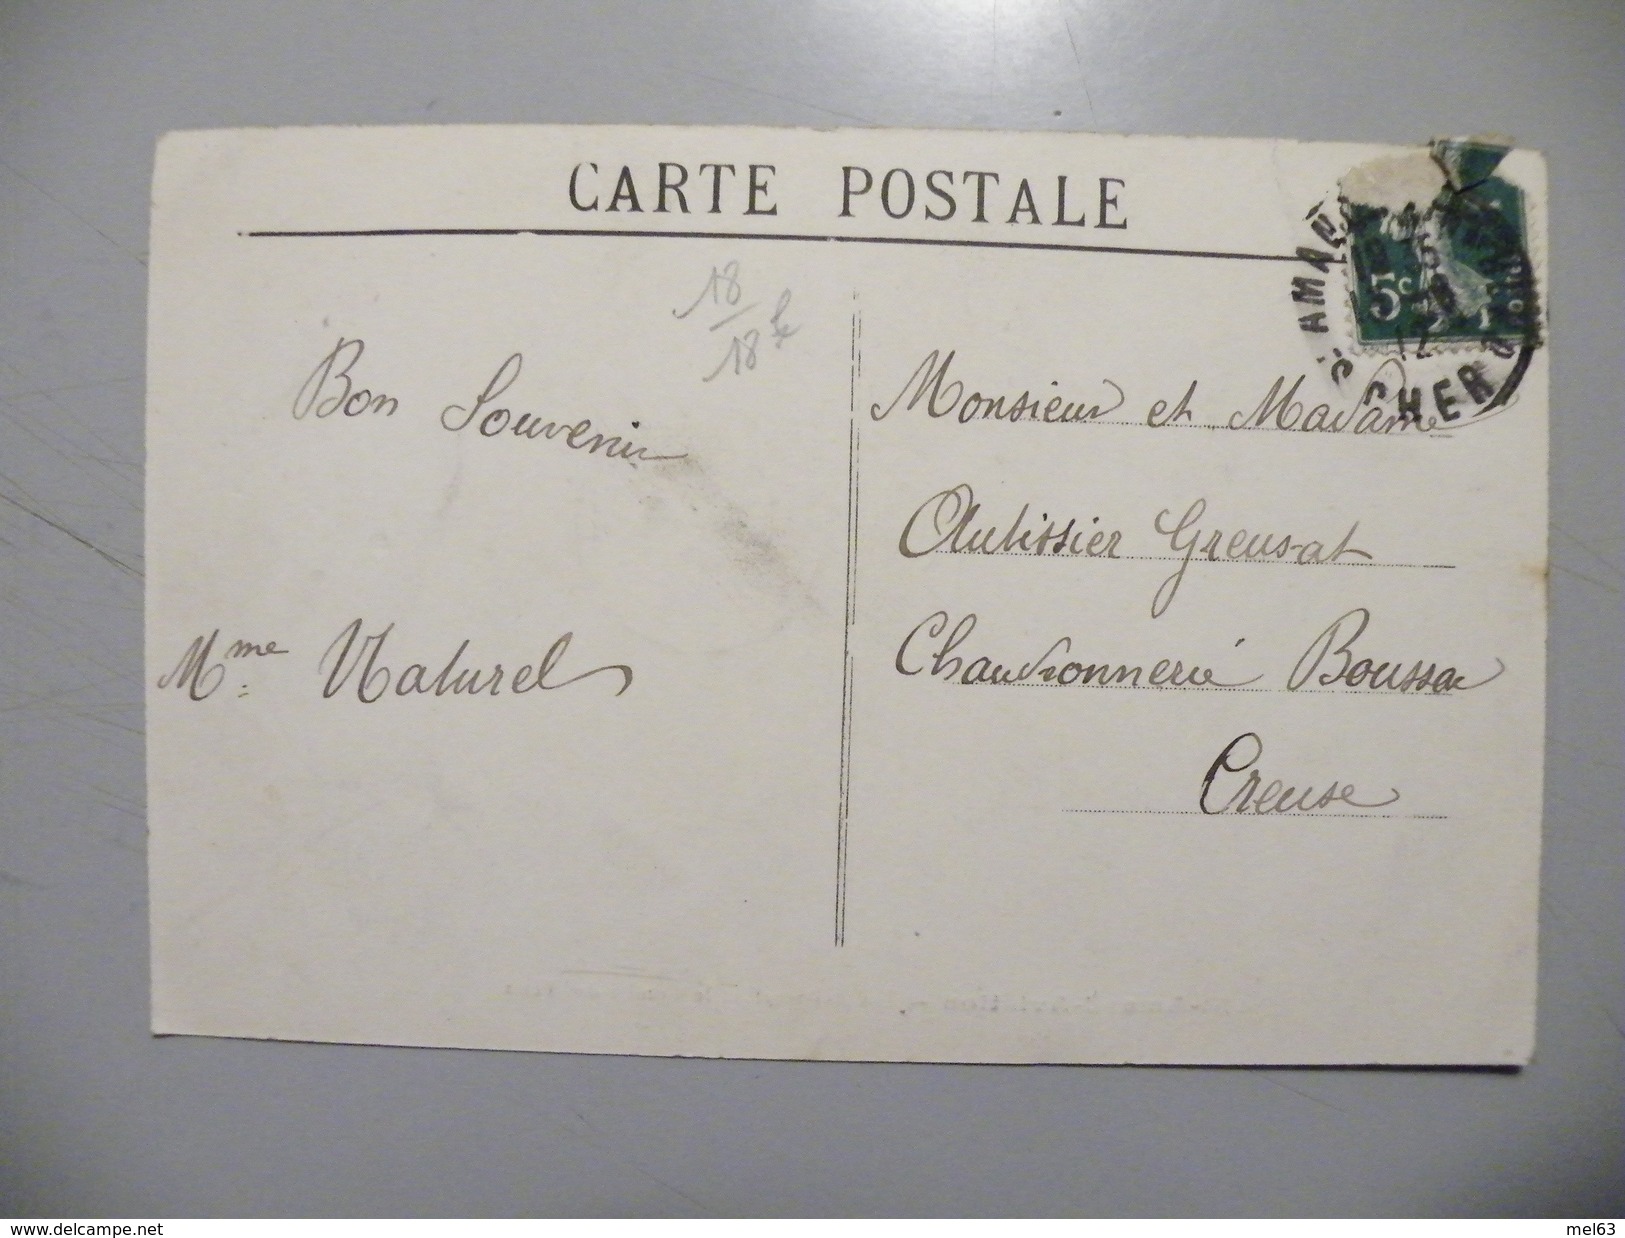 CARTE POSTALE
18
18 fx
Bon Souvenir
Mme Naturel
Monsieur et Madame
Autissier Greusat
Chaudronnerie Boussac
Creuse
5c
ST AMAND
CHER
www.delcampe.net
mel63